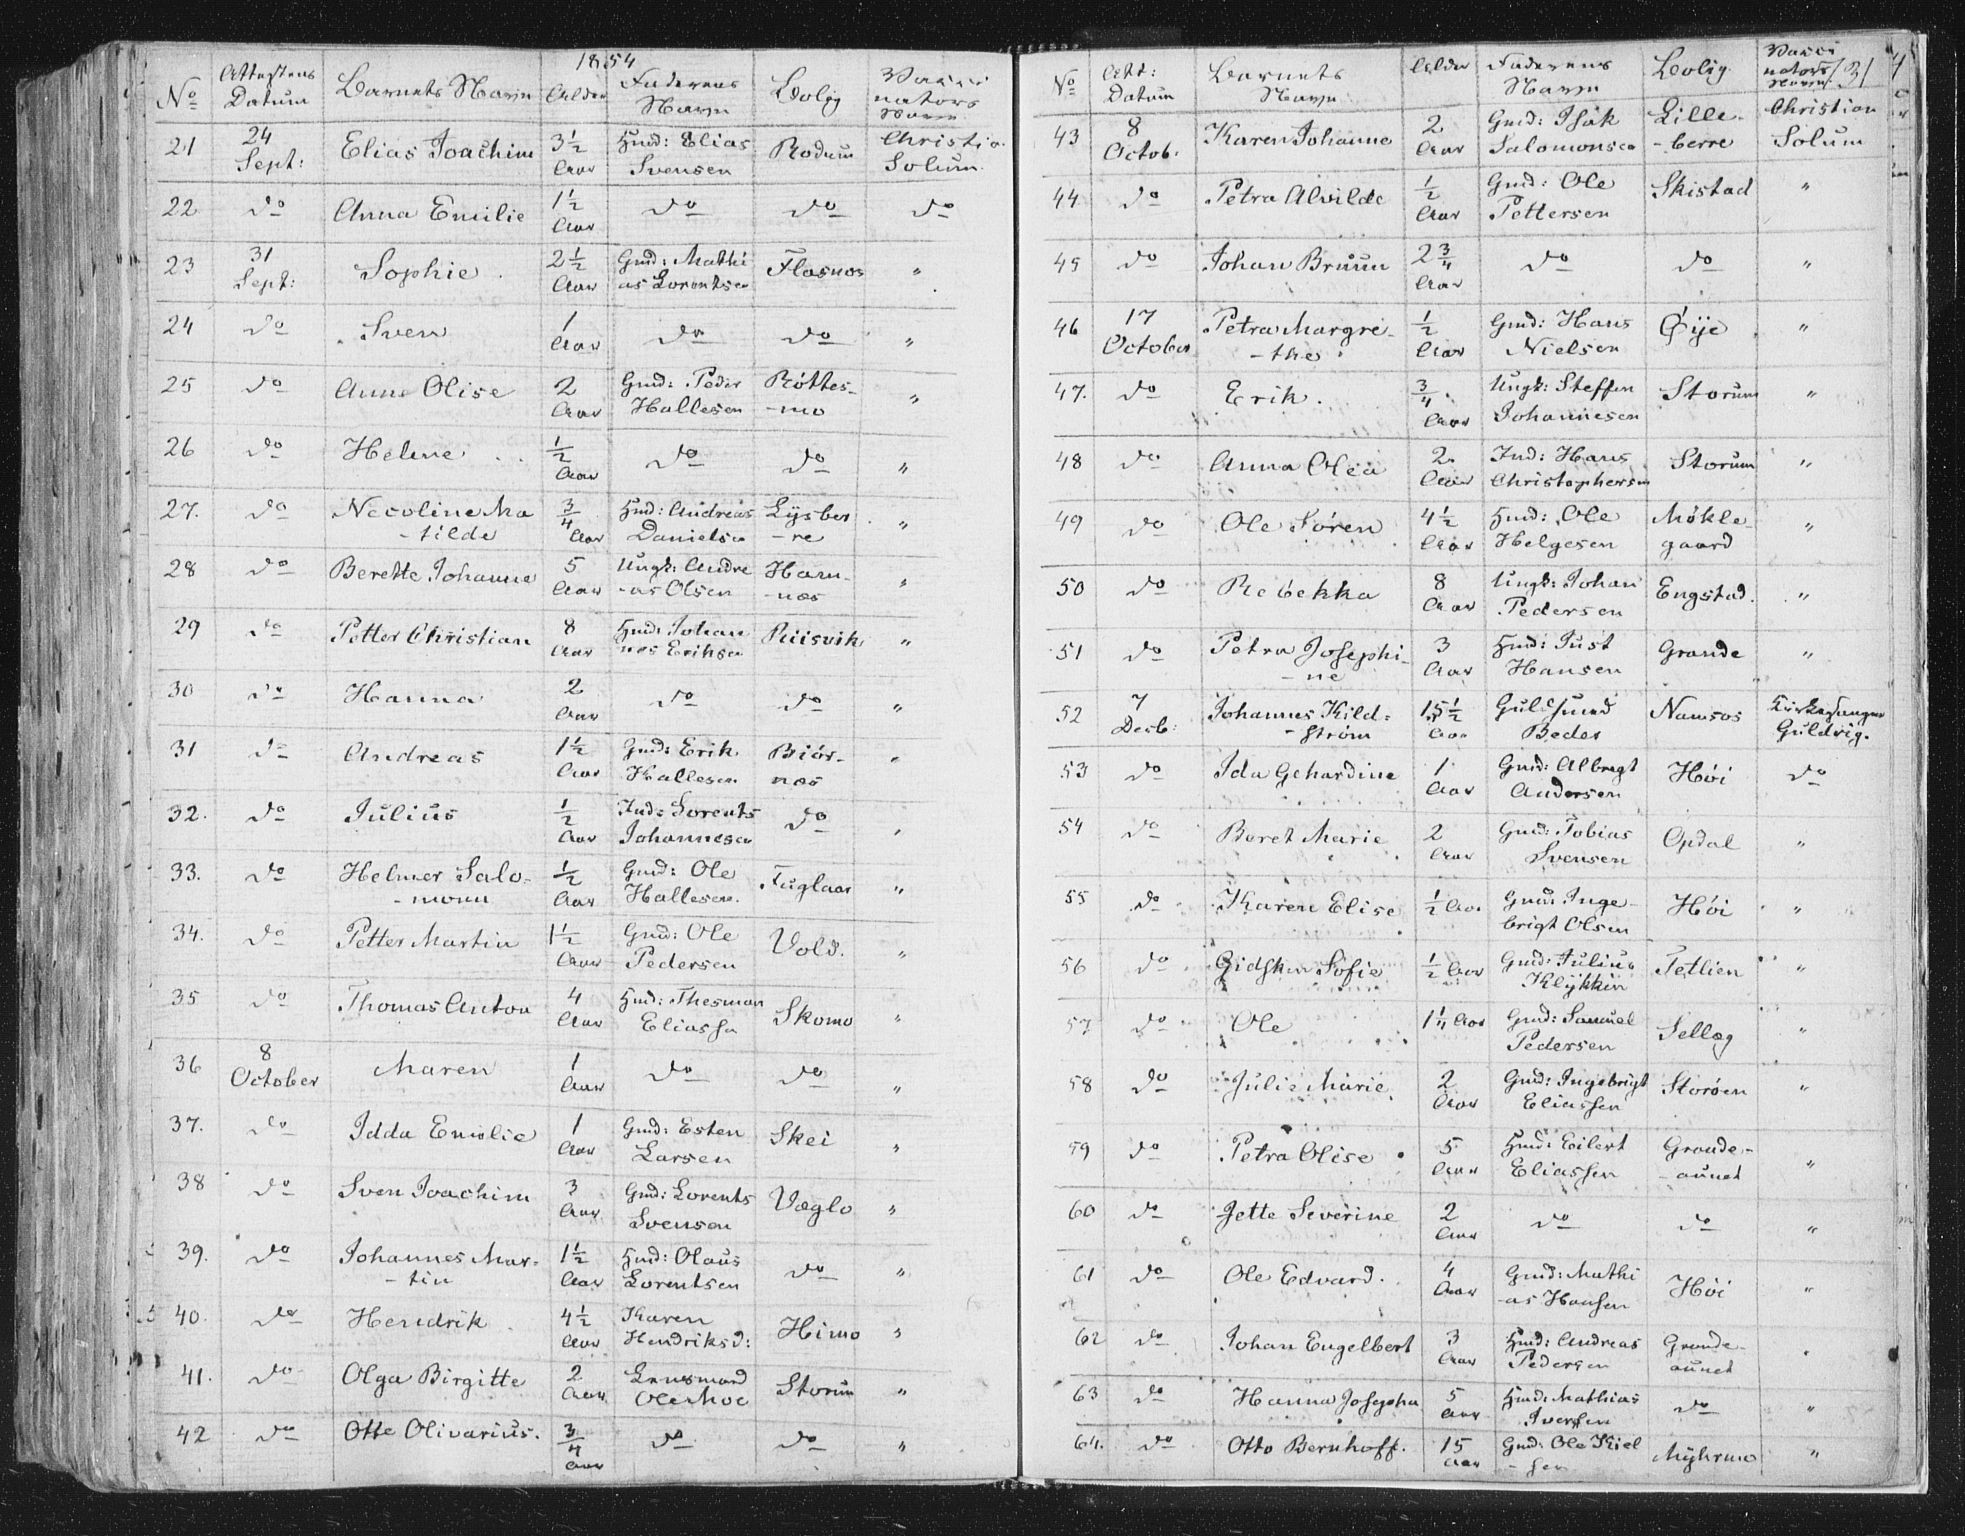 1854
No Attestens Datum Barnets Navn Alder Faderens Navn Bolig Vacci nators Navn
21 24 Sept: Elias Joachim 3½ Aar Hmd: Elias Svensen Rodum Christia. Solum.
22 do Anna Emilie 1½ Aar do do do
23 31 Sept: Sophie 2½ Aar Gmd: Mathi as Lorentsen Flasnæs "
24 do Sven 1 Aar do do "
25 do Anne Olise 2 Aar Gmd: Peder Hallesen Røttes- -mo "
26 do Helene ½ Aar do do "
27. do Nicoline Ma -tilde ¾ Aar Hmd: Andreas Danielsen Lysber -re "
28 do Berette Johanne 5 Aar Ungk: Andre -as Olsen Harn- -næs "
29 do Petter Christian 8 Aar Hmd: Johan nes Eriksen Riisvik "
30 do Hanna 2 Aar do do "
31 do Andreas 1½ Aar Gmd: Erik Hallesen Biør- næs "
32. do Julius ½ Aar Ind: Lorents Johannesen do "
33. do Helmer Salo- -monn ½ Aar Gmd: Ole Hallesen. Fuglaar "
34. do Petter Martin 1½ Aar Gmd: Ole Pedersen Vold. "
35 do Thomas Anton 4 Aar Hmd: Thesman Eliassen Skomo "
36 8 October Maren 1 Aar do do "
37. do Idda Emilie 1 Aar Gmd: Esten Larsen Skei "
38 do Sven Joachim 3 Aar Gmd: Lorents Svensen Væglo "
39. do Johannes Mar- -tin 1½ Aar Hmd: Olaus Lorentsen do "
40. do Hendrik 4½ Aar Karen Hendriksd: Himo "
41. do Olga Birgitte 2 Aar Lensmand Ole Moe Storum "
42 do Otte Olivarius. ¾ Aar do do "
No Att: Datum Barnets Navn Alder Faderens Navn Bolig Vacci nators Navn
43 8 Octob: Karen Johanne 2 Aar Gmd: Isak Salomonsen Lille- -berre Christian Solum
44 do Petra Alvilde ½ Aar Gmd: Ole Pettersen Skistad "
45 do Johan Bruun 2¾ Aar do do "
46 17 October Petra Margre- -the ½ Aar Gmd: Hans Nielsen Øije "
47. do Erik. ¾ Aar Ungk: Steffen Johannesen Storum "
48 do Anna Olea 2 Aar Ind: Hans Christophersen Storum "
49 do Ole Søren 4½ Aar Hmd: Ole Helgesen Møkle- gaard "
50 do Rebekka 8 Aar Ungk: Johan Pedersen Engstad. "
51 do Petra Josephi- -ne 3 Aar Hmd: Just Hansen Grande "
52 7 Decb: Johannes Kild= -strøm 15½ Aar Guldsmed Beder Namsos Kirkesanger Guldvig.
53 do Ida Gehardine 1 Aar Gmd: Albregt Andersen Høi do
54 do Beret Marie 2 Aar Gmd: Tobias Svensen Opdal "
55 do Karen Elise ½ Aar Gmd: Inge- brigt Olsen Høi "
56 do Gidsken Sofie ½ Aar Gmd: Julius Klykken Tetlien "
57 do Ole 1¼ Aar Gmd: Samuel Pedersen Sellæg "
58 do Julie Marie 2 Aar Gmd: Ingebrigt Eliassen Storøen "
59 do Petra Olise 5 Aar Hmd: Eilert Eliassen Grande- -aunet "
60 do Jette Severine 2 Aar do do "
61 do Ole Edvard. 4 Aar Gmd: Mathi -as Hansen Høi "
62 do Johan Engelbert 3 Aar Hmd: Andreas Pedersen Grande- aunet "
63 do Hanna Josepha 5 Aar Hmd: Mathias Iversen do "
64. do Otto Bernhoff. 15 Aar Gmd: Ole Kiel -sen Myhrmo "